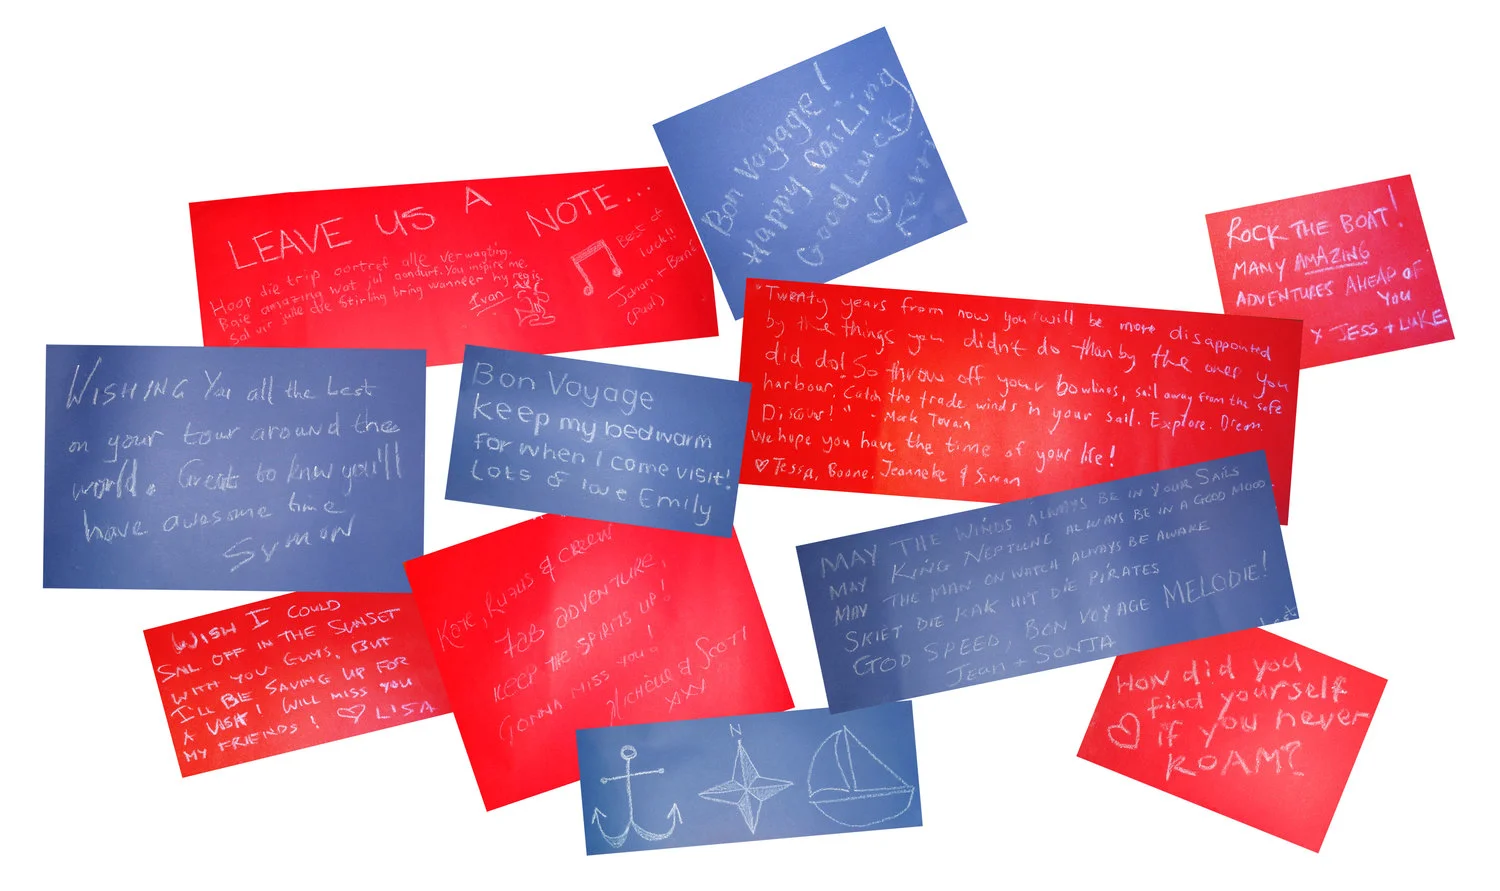 LEAVE US A NOTE...
Hoop die trip oortref alle verwagting.
Baie amazing wat jul aandurf. You inspire me.
Sal vir julle die Stirling bring wanneer hy reg is.
Ivan
Best of
luck!!
Johan +
(Paul)
Bon Voyage!
Happy Sailing
Good Luck
ROCK THE BOAT!
MANY AMAZING
ADVENTURES AHEAD OF
YOU
x JESS + LUKE
"Twenty years from now you will be more disappointed
by the things you didn't do than by the ones you
did do! So throw off your bowlines, sail away from the safe
harbour. Catch the trade winds in your sail. Explore. Dream.
Discover!" - Mark Twain
We hope you have the time of your life!
♡ Tessa, Boone, Jeanneke & Simon
WISHING You all the best
on your tour around the
world. Great to know you'll
have awesome time
Symon
Bon Voyage
keep my bed warm
for when I come visit!
Lots of love Emily
MAY THE WINDS ALWAYS BE IN YOUR SAILS
MAY KING NEPTUNE ALWAYS BE IN A GOOD MOOD.
MAY THE MAN ON WATCH ALWAYS BE AWAKE
SKIET DIE KAK UIT DIE PIRATES
GOD SPEED, BON VOYAGE MELODIE!
JEAN + SONJA
WISH I COULD
SAIL OFF IN THE SUNSET
WITH YOU GUYS, BUT
I'LL BE SAVING UP FOR
A VISIT! I WILL MISS YOU
MY FRIENDS! ♡ LISA
KATE, RUFUS & CREW
FAB ADVENTURE,
KEEP THE SPIRITS UP!
GONNA MISS YOU!
Michelle & SCOTT
XXX
N
How did you
find yourself
♡ if you never
ROAM?